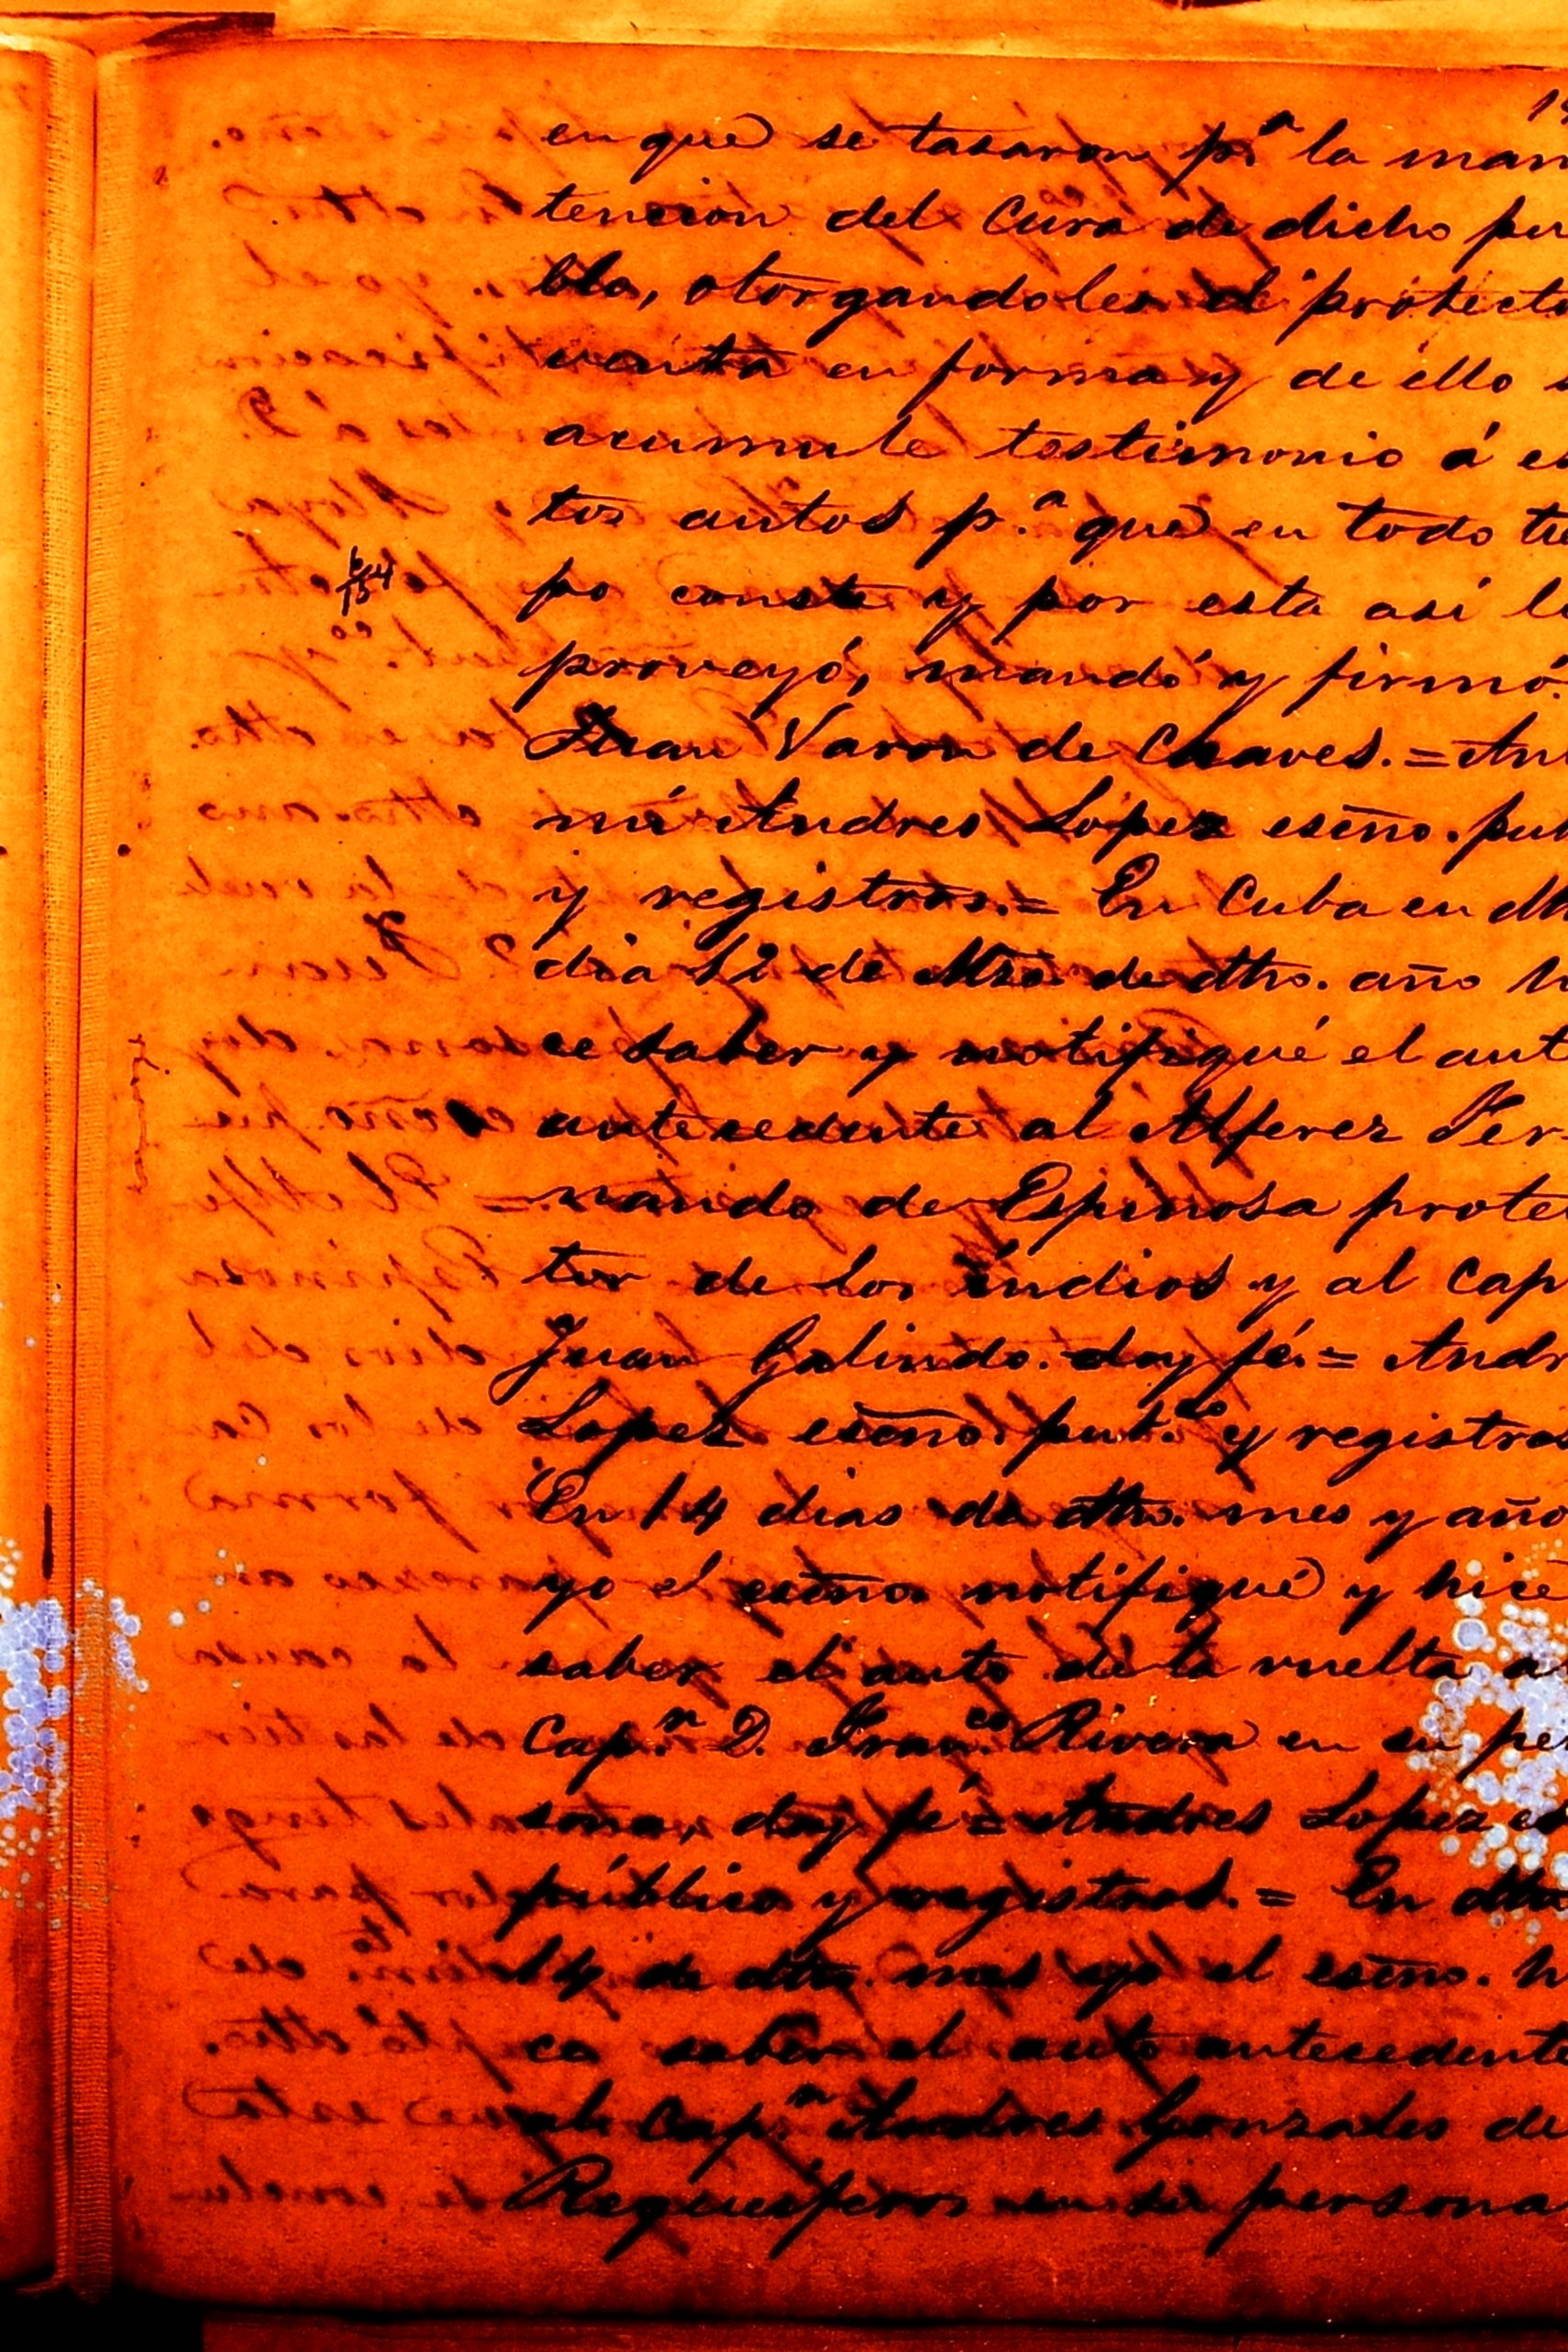 en que se tasaron p.ª la man
tencion del Cura de dicho pu
blo, otorgandoles el protect
venta en forma y de éllo s
acumule testimonio á es
tos autos p.ª que en todo tie
po conste y por esta asi lo
proveyó, mandó y firmó.
Juan Varon de Chaves. = An
mi Andres López esno. pub
y registros. = En Cuba en dh
dia 12 de Mzo. de dho. año h
ce saber y notifiqué el aut
antecedente al Alferez Fer
nando de Espinosa prote
tor de los indios y al Cap
Juan Galindo. doy fé. = Andr
Lopez esno. pub.co y registros
En 14 dias de dho. mes y año
yo el esno. notifiqué y hice
saber el auto de la vuelta a
Cap.n D. Fran.co Rivera en su per
sona, doy fé = Andres Lopez es
público y registros. = En dho
14 de dho. mes yo el esno. h
ce saber el auto antecedente
al Cap.n Andres Gonzales de
en su persona